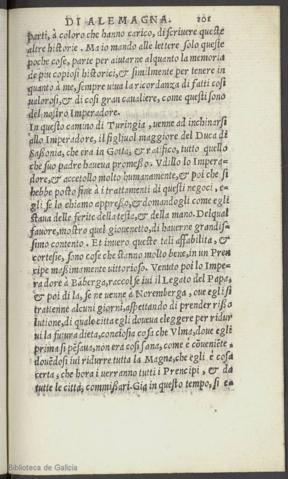 DI ALEMAGNA. 101
parti, à coloro che hanno carico, di scriuere queste
altre historie. Ma io mando alle lettere solo queste
poche cose, parte per aiutarne alquanto la memoria
de piu copiosi historici, & similmente per tenere in
quanto à me, sempre uiua la ricordanza di fatti così
ualorosi, & di così gran caualiere, come questi sono
del nostro Imperadore.
In questo camino di Turingia, uenne ad inchinarsi
allo Imperadore, il figliuol maggiore del Duca di
Sassonia, che era in Gotta, & ratifico, tutto quello
che suo padre haueua promesso. Vdillo lo Impera-
dore, & accetollo molto humanamente, & poi che si
hebbe posto fine à i trattamenti di questi negoci, e-
gli se lo chiamo appresso, & domandogli come egli
staua delle ferite della testa, & della mano. Delqual
fauore, mostro quel giouenetto, di hauerne grandis-
simo contento. Et inuero queste tali affabilita, &
cortesie, sono cose che stanno molto bene, in un Pren
cipe maßimamente uittorioso. Venuto poi lo Impe-
radore à Bāberga, raccolse iui il Legato del Papa,
& poi di la, se ne uenne à Noremberga, oue egli si
trattenne alcuni giorni, aspettando di prender risso
lutione, di quale citta egli doueua eleggere per ridur
ui la futura dieta, conciosia cosa che Vlma, doue egli
prima si pēsaua, non era così sana, come è cōueniēte,
douēdosi iui ridurre tutta la Magna, che egli è cosa
certa, che hora i uerranno tutti i Prencipi, & da
tutte le città, commissari. Gia in questo tempo, si e-
Biblioteca de Galicia